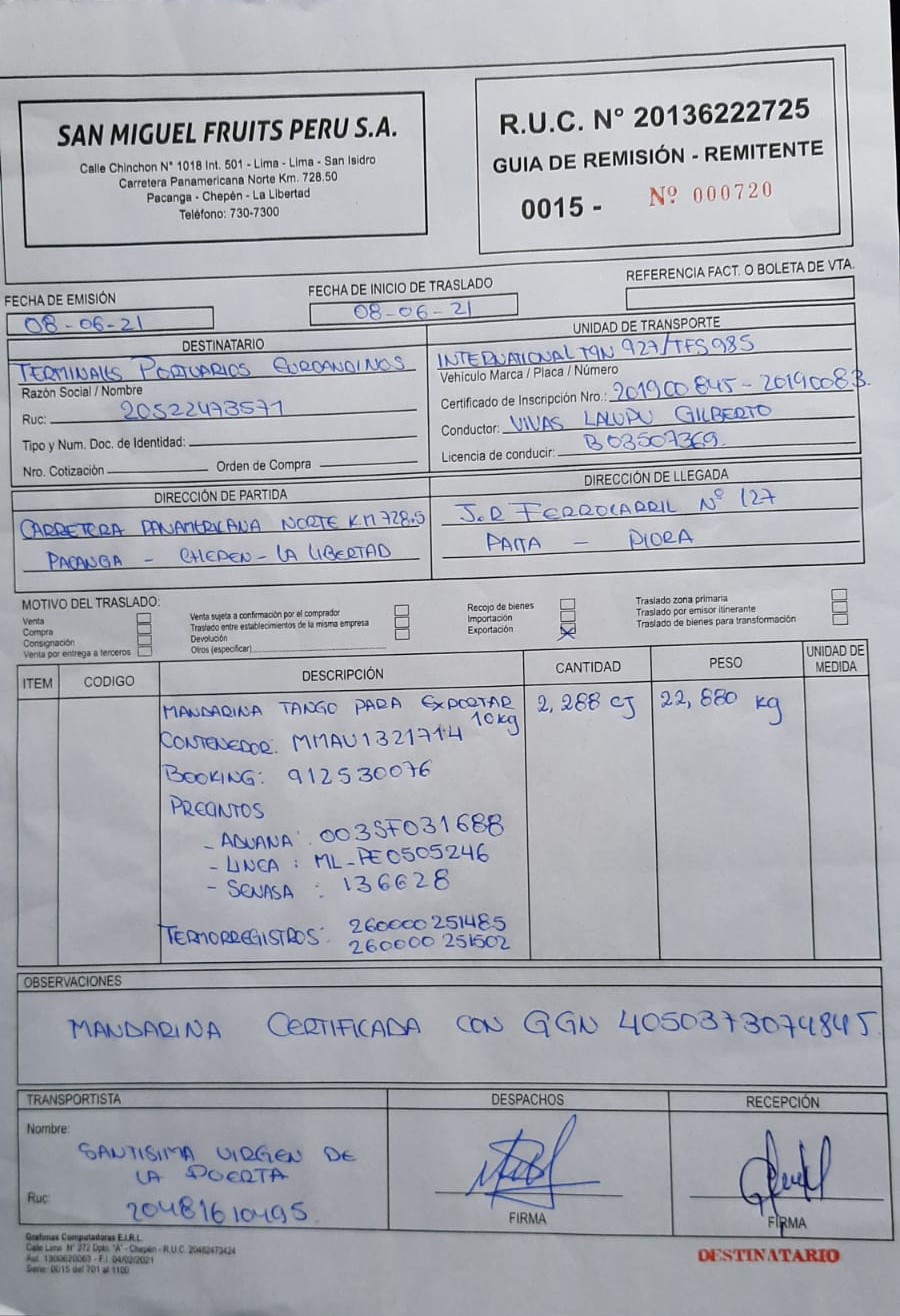 SAN MIGUEL FRUITS PERU S.A.
Calle Chinchon N° 1018 Int. 501 - Lima - Lima - San Isidro
Carretera Panamericana Norte Km. 728.50
Pacanga - Chepén - La Libertad
Teléfono: 730-7300
R.U.C. N° 20136222725
GUIA DE REMISIÓN - REMITENTE
0015 - Nº 000720
FECHA DE EMISIÓN
08-06-21
FECHA DE INICIO DE TRASLADO
08-06-21
REFERENCIA FACT. O BOLETA DE VTA.
DESTINATARIO
TERMINALES PORTUARIOS EUROANDINOS
Razón Social / Nombre
Ruc: 20522473571
Tipo y Num. Doc. de Identidad:
Nro. Cotización Orden de Compra
UNIDAD DE TRANSPORTE
INTERNATIONAL T9N 927/TFS985
Vehículo Marca / Placa / Número
Certificado de Inscripción Nro.: 201900845 - 20190083
Conductor: VIVAS LALUPU GILBERTO
Licencia de conducir: B03507369.
DIRECCIÓN DE PARTIDA
CARRETERA PANAMERICANA NORTE KM 728.5
PACANGA - CHEPEN - LA LIBERTAD
DIRECCIÓN DE LLEGADA
J.R FERROCARRIL Nº 127
PAITA - PIURA
MOTIVO DEL TRASLADO:
Venta
Compra
Consignación
Venta por entrega a terceros
Venta sujeta a confirmación por el comprador
Traslado entre establecimientos de la misma empresa
Devolución
Otros (especificar)
Recojo de bienes
Importación
Exportación X
Traslado zona primaria
Traslado por emisor itinerante
Traslado de bienes para transformación
ITEM CODIGO DESCRIPCIÓN CANTIDAD PESO UNIDAD DE MEDIDA
MANDARINA TANGO PARA EXPORTAR 2,288 CJ 22,880 kg
10kg
CONTENEDOR: MMAU1321714
BOOKING: 912530076
PRECINTOS
- ADUANA: 003SF031688
- LINEA : ML-PE0505246
- SENASA : 136628
TERMORREGISTROS: 260000251485
260000251502
OBSERVACIONES
MANDARINA CERTIFICADA CON GGN 4050373074845
TRANSPORTISTA
Nombre:
SANTISIMA VIRGEN DE
LA PUERTA
Ruc: 20481610495
DESPACHOS
FIRMA
RECEPCIÓN
FIRMA
Grafimas Computadoras E.I.R.L.
Calle Lima N° 272 Dpto. "A" - Chepén - R.U.C. 20482473424
Aut. 1300620063 - F.I. 04/02/2021
Serie: 0015 del 701 al 1100
DESTINATARIO